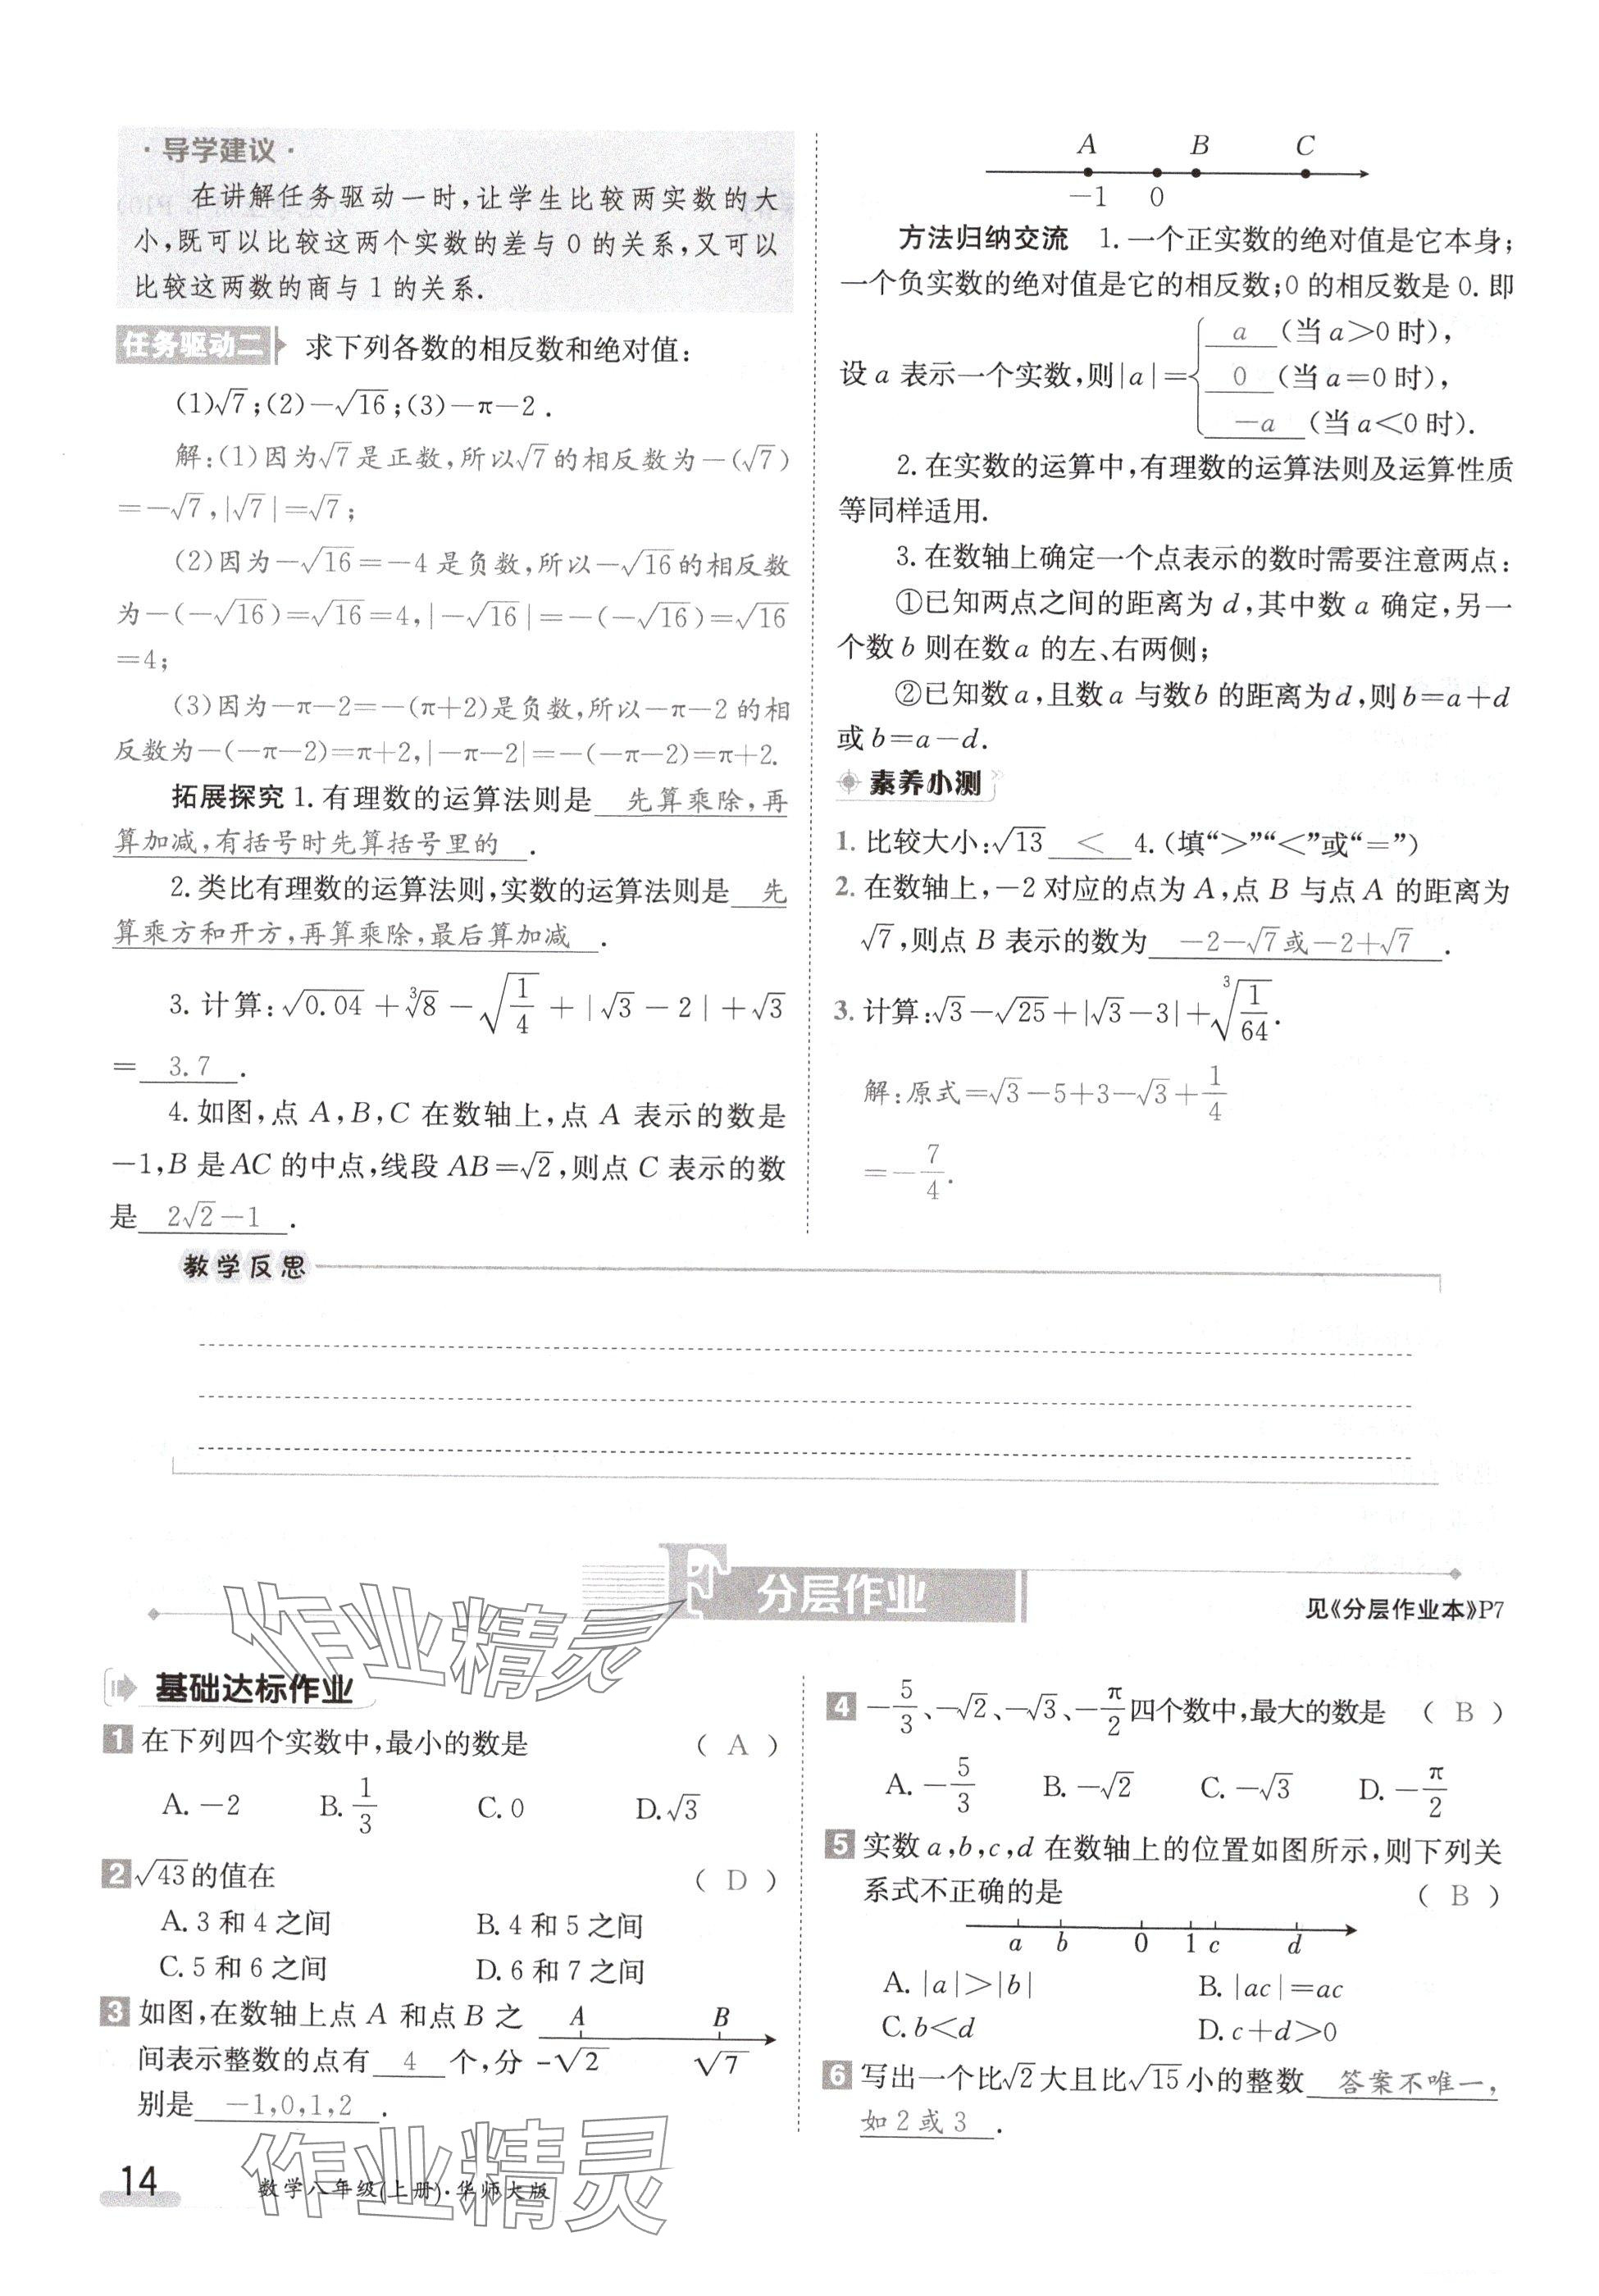 ·导学建议·
在讲解任务驱动一时,让学生比较两实数的大
小,既可以比较这两个实数的差与0的关系,又可以
比较这两数的商与1的关系.
任务驱动二 求下列各数的相反数和绝对值:
(1)√7;(2)-√16;(3)-π-2.
解:(1)因为√7是正数,所以√7的相反数为-(√7)
=-√7,|√7|=√7;
(2)因为-√16=-4是负数,所以-√16的相反数
为-(-√16)=√16=4,|-√16|=-(-√16)=√16
=4;
(3)因为-π-2=-(π+2)是负数,所以-π-2的相
反数为-(-π-2)=π+2,|-π-2|=-(-π-2)=π+2.
拓展探究 1.有理数的运算法则是 先算乘除,再
算加减,有括号时先算括号里的.
2.类比有理数的运算法则,实数的运算法则是 先
算乘方和开方,再算乘除,最后算加减.
3.计算:√0.04+∛8-√(1/4)+|√3-2|+√3
= 3.7 .
4.如图,点A,B,C在数轴上,点A表示的数是
-1,B是AC的中点,线段AB=√2,则点C表示的数
是 2√2-1 .
A B C
-1 0
方法归纳交流 1.一个正实数的绝对值是它本身;
一个负实数的绝对值是它的相反数;0的相反数是0.即
a (当a>0时),
设a表示一个实数,则|a|={ 0 (当a=0时),
-a (当a<0时).
2.在实数的运算中,有理数的运算法则及运算性质
等同样适用.
3.在数轴上确定一个点表示的数时需要注意两点:
①已知两点之间的距离为d,其中数a确定,另一
个数b则在数a的左、右两侧;
②已知数a,且数a与数b的距离为d,则b=a+d
或b=a-d.
素养小测
1.比较大小:√13 < 4.(填“>”“<”或“=”)
2.在数轴上,-2对应的点为A,点B与点A的距离为
√7,则点B表示的数为 -2-√7或-2+√7 .
3.计算:√3-√25+|√3-3|+∛(1/64).
解:原式=√3-5+3-√3+1/4
=-7/4.
教学反思
F 分层作业
见《分层作业本》P7
基础达标作业
1 在下列四个实数中,最小的数是 ( A )
A.-2 B.1/3 C.0 D.√3
2 √43的值在 ( D )
A.3和4之间 B.4和5之间
C.5和6之间 D.6和7之间
3 如图,在数轴上点A和点B之
间表示整数的点有 4 个,分
别是 -1,0,1,2 .
A B
-√2 √7
4 -5/3、-√2、-√3、-π/2四个数中,最大的数是 ( B )
A.-5/3 B.-√2 C.-√3 D.-π/2
5 实数a,b,c,d在数轴上的位置如图所示,则下列关
系式不正确的是 ( B )
a b 0 1 c d
A.|a|>|b| B.|ac|=ac
C.b<d D.c+d>0
6 写出一个比√2大且比√15小的整数 答案不唯一,
如2或3 .
14 数学八年级(上册)·华师大版
作业精灵
作业精灵